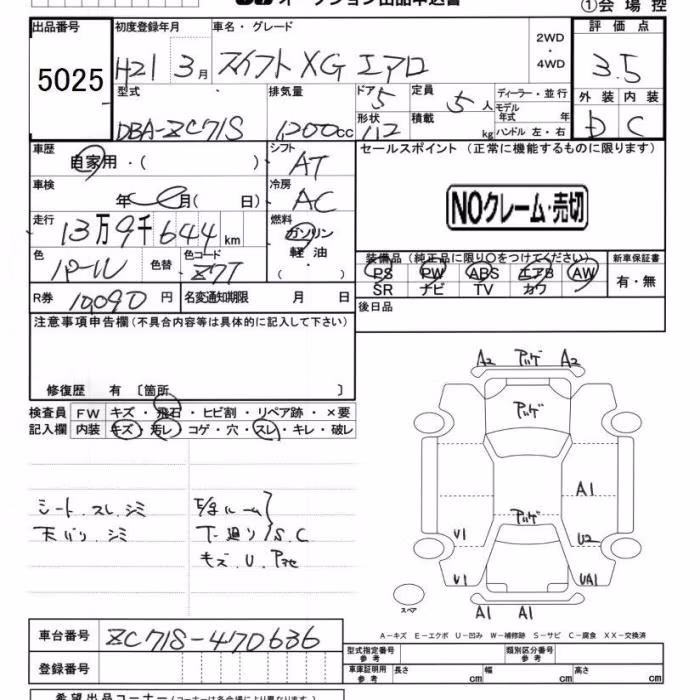 オークション出品申込書
①会場控
出品番号 5025
初度登録年月 H21 3月
車名・グレード スイフト XG エアロ
2WD ・ 4WD
評価点 3.5
外装 D 内装 C
型式 DBA-ZC71S
排気量 1200cc
ドア 5
形状 112
定員 5人
積載 kg
ディーラー・並行
モデル年式 年
ハンドル 左・右
車歴 自家用・( )
シフト AT
セールスポイント (正常に機能するものに限ります)
NOクレーム・売切
車検 年 月( 日)
冷房 AC
走行 13万9千644km
燃料 ガソリン 軽油 ・( )
色 パール 色替 色コード Z7T
装備品 (純正品に限り○をつけてください)
PS PW ABS エアB AW
SR ナビ TV カワ
新車保証書 有・無
R券 10,090円
名変通知期限 月 日
後日品
注意事項申告欄(不具合内容等は具体的に記入して下さい)
修復歴 有 〔箇所 〕
検査員記入欄
FW キズ・飛石・ヒビ割・リペア跡・×要
内装 キズ・汚レ・コゲ・穴・スレ・キレ・破レ
シート.スレ.シミ
天バリ.シミ
下廻り S.C
キズ.U.
A2 A2
A1
U1 U2
U1 UA1
A1 A1
スペア
A-キズ E-エクボ U-凹み W-補修跡 S-サビ C-腐食 XX-交換済
車台番号 ZC71S-470636
登録番号
型式指定番号 参考
類別区分番号 参考
車庫証明用 参考 長さ cm 幅 cm 高さ cm
希望出品コーナー (コーナーは各会場により異なります)